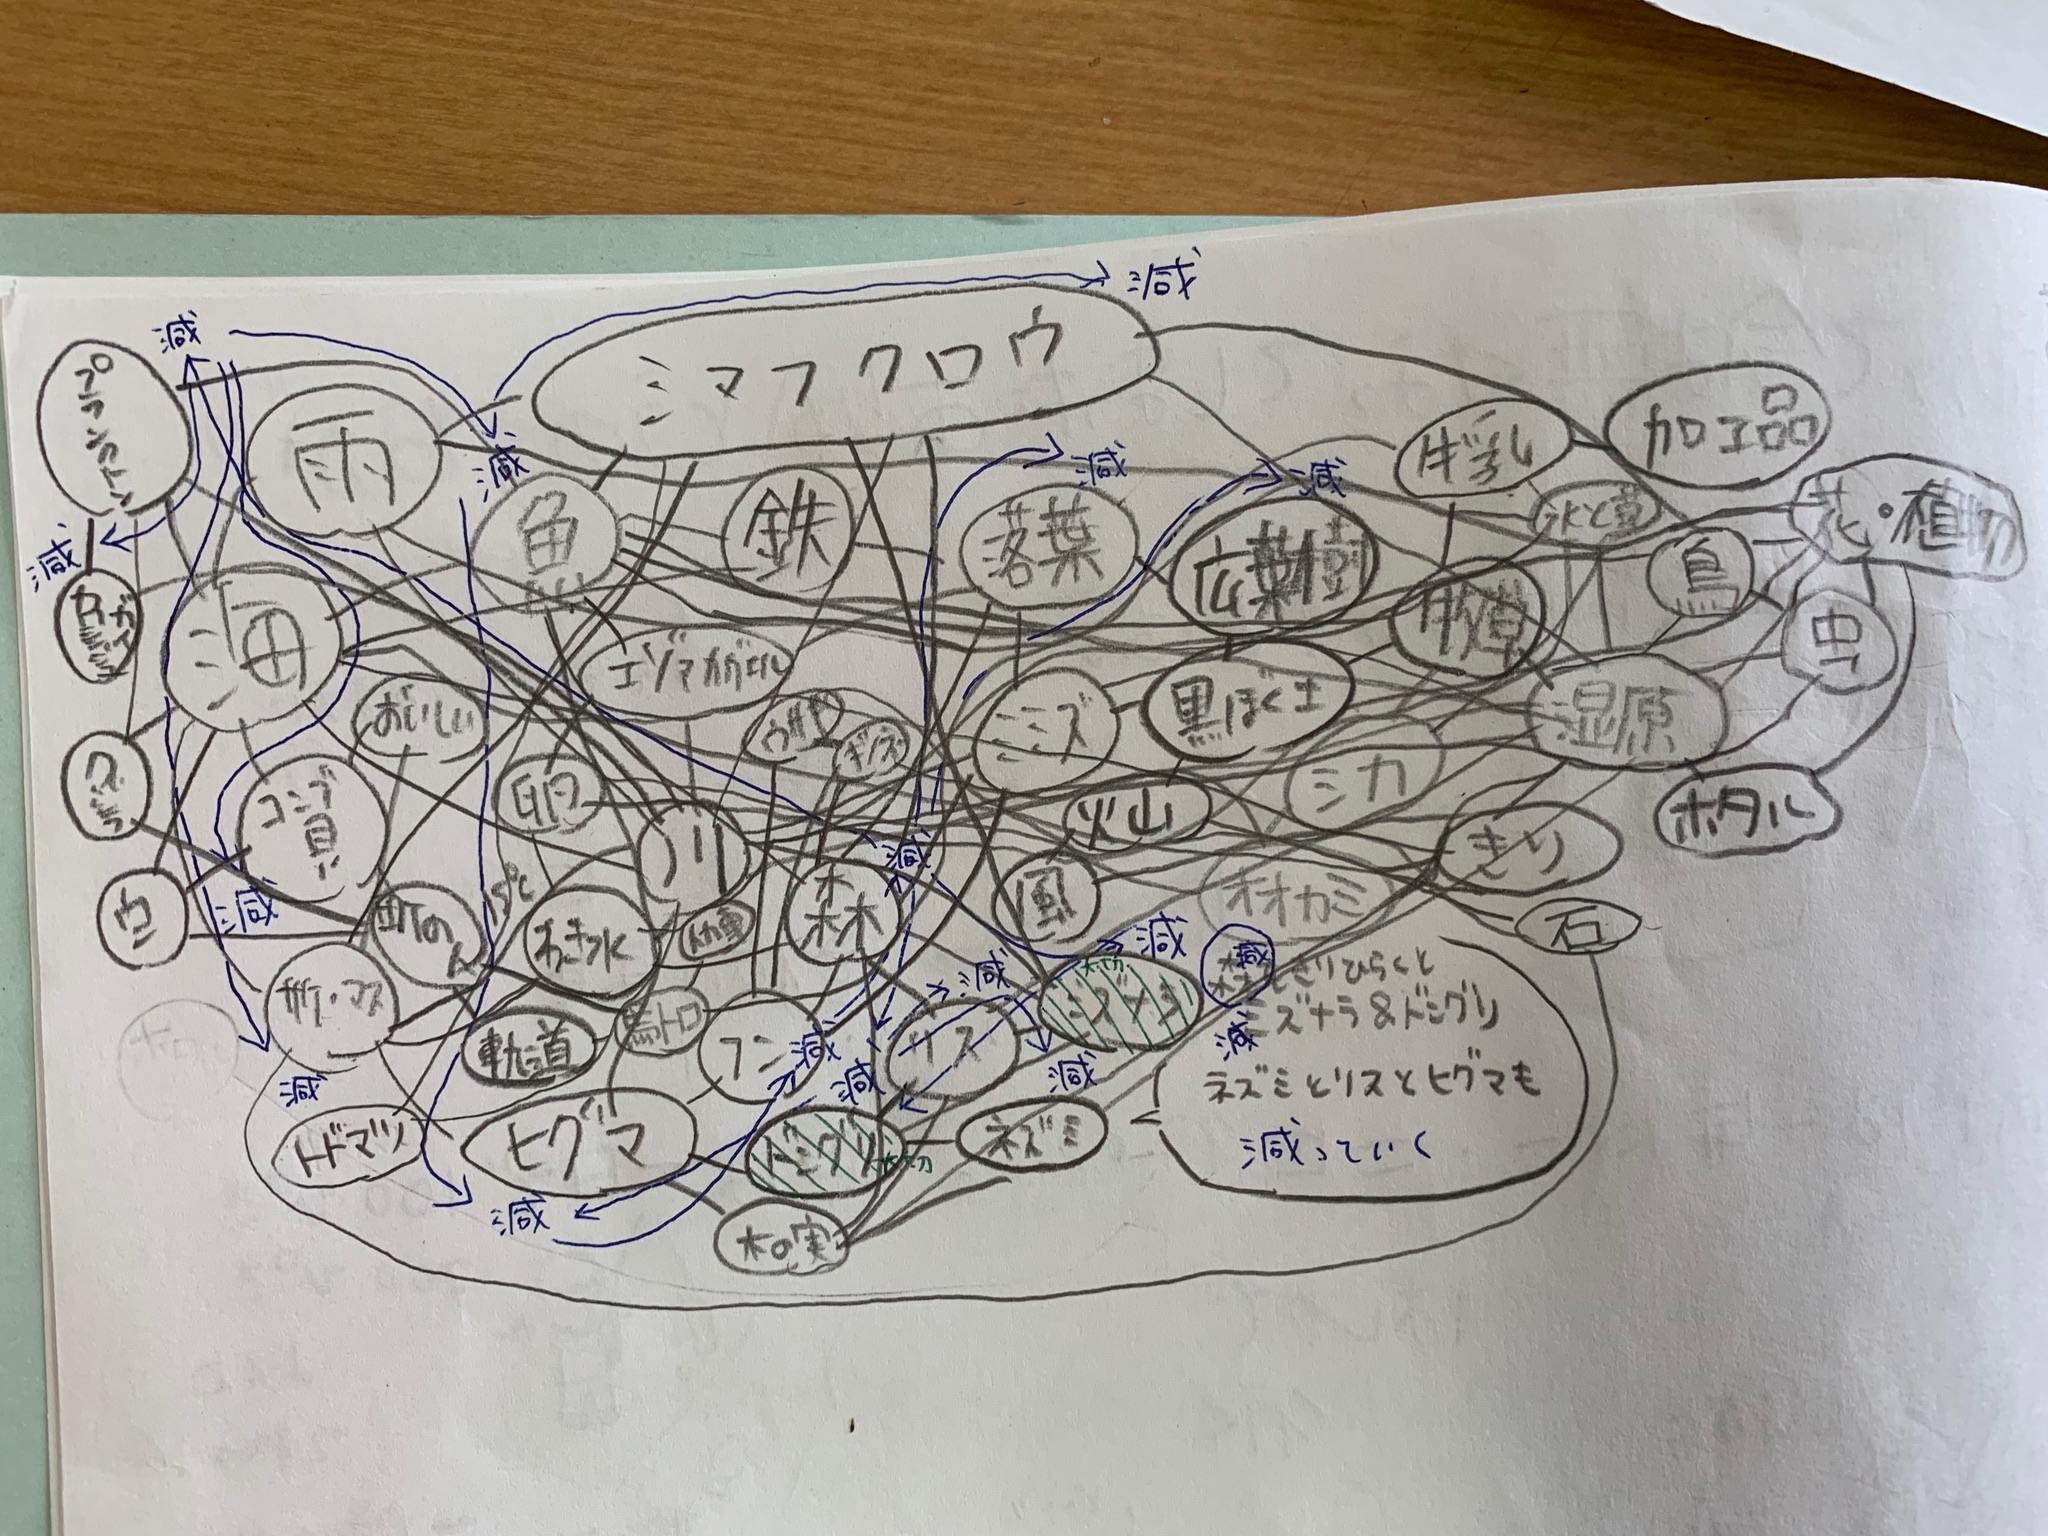 減
減
シマフクロウ
プランクトン
雨
減
減
減
減
牛乳
加工品
魚
鉄
落葉
広葉樹
花・植物
鳥
牧草
虫
海
エゾアカガエル
おいしい
ミミズ
黒ぼく土
湿原
シカ
ホタル
クジラ
コンブ
卵
川
火山
きり
ウニ
減
町の人
15℃
わき水
森
減
風
オオカミ
石
サケ・マス
軌道
馬トロ
フン
減
リス
減
ミズナラ
大切
減
森
減
をきりひらくと
ミズナラ&ドングリ
減
ネズミとリスとヒグマも
減っていく
減
減
減
トドマツ
ヒグマ
ドングリ
大切
ネズミ
減
木の実